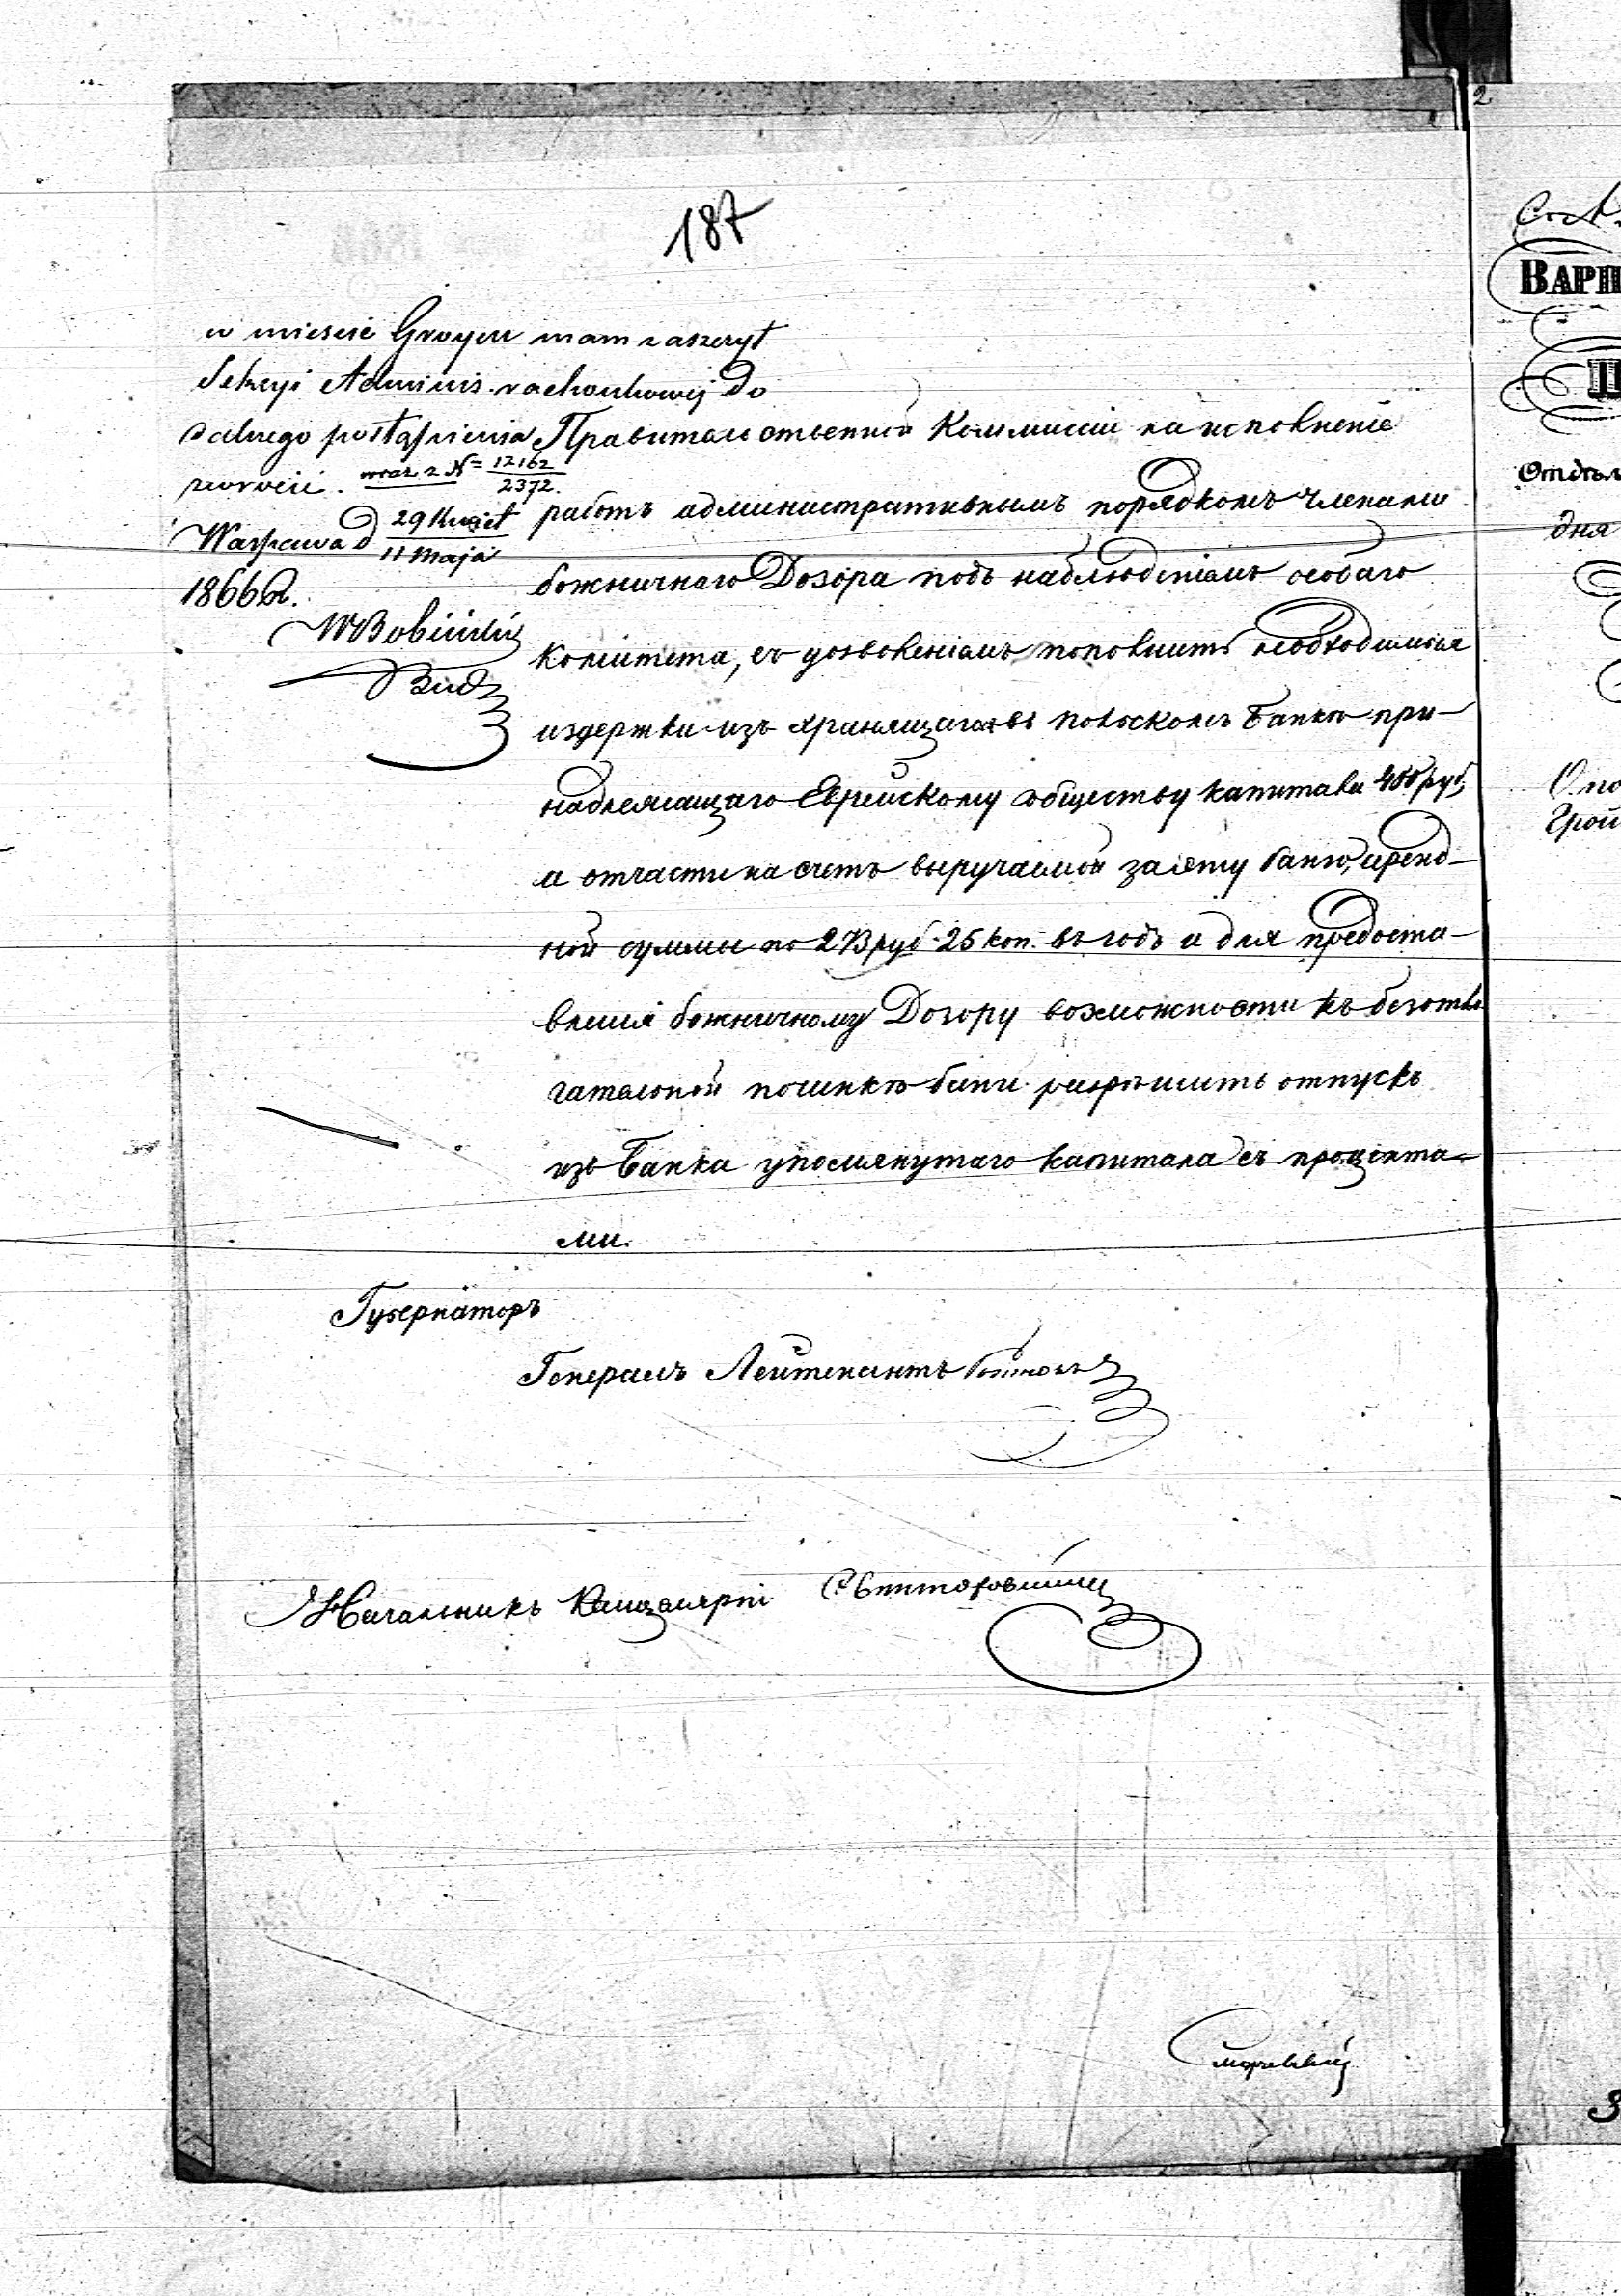 187
w mieście Grojcu mam zaszczyt
Sekcyi Adminis. rachunkowej do
dalnego postąpienia
zwrócić. wraz z N= 12162/2372.
Warszawa d 29 Kwiet/11 Maja
1866 r.
Правительственной Коммисіи на исполненіе
работъ административнымъ порядкомъ членами
божничнаго Дозора подъ наблюденіемъ особаго
комитета, съ дозволеніемъ пополнить необходимыя
издержки изъ хранящагося въ Польскомъ Банкѣ при-
надлежащаго Еврейскому обществу капитала 400 руб,
и отчасти на счетъ выручаемой за эту баню, аренд-
ной суммы по 273 руб. 25 коп. въ годъ и для предоста-
вленія божничному Дозору возможности къ безотла
гательной починкѣ бани разрѣшить отпускъ
изъ Банка упомянутаго капитала съ процента-
ми.
Губернаторъ
Генералъ Лейтенантъ
Начальникъ Канцеляріи
2
ВАРШ
Отдѣл
дня
О по
Грой